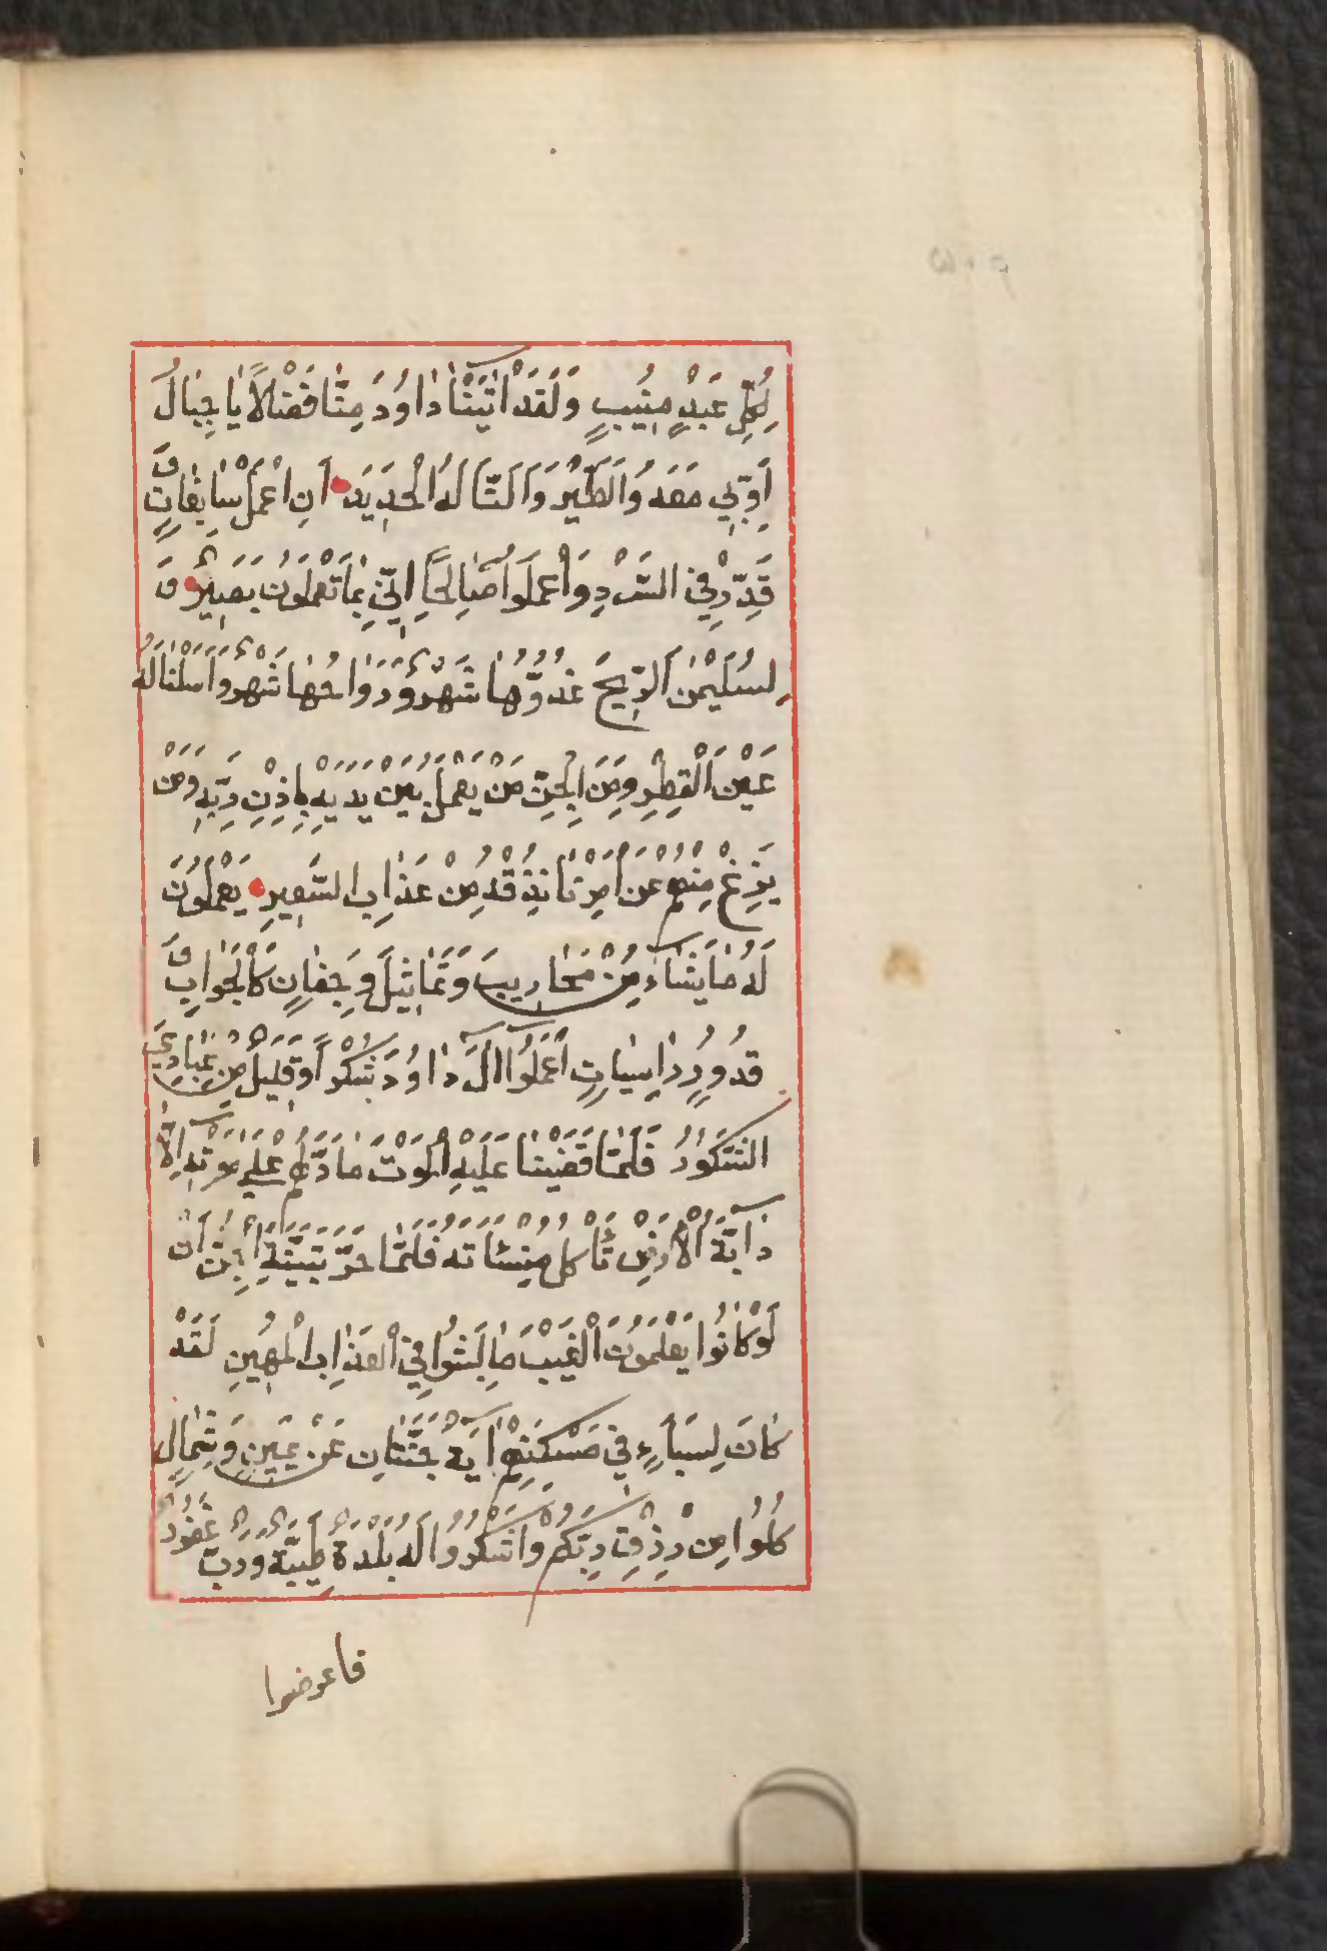 لِكُلِّ عَبْدٍ مُنِيبٍ وَلَقَدْ اٰتَيْنَا دَاوُدَ مِنَّا فَضْلًا يَا جِبَالُ
اَوِّبِي مَعَهُ وَالطَّيْرَ وَاَلَنَّا لَهُ الْحَدِيدَ اَنِ اعْمَلْ سَابِغَاتٍ وَ
قَدِّرْ فِي السَّرْدِ وَاعْمَلُوا صَالِحًا اِنِّي بِمَا تَعْمَلُونَ بَصِيرٌ وَ
لِسُلَيْمٰنَ الرِّيحَ غُدُوُّهَا شَهْرٌ وَرَوَاحُهَا شَهْرٌ وَاَسَلْنَا لَهُ
عَيْنَ الْقِطْرِ وَمِنَ الْجِنِّ مَنْ يَعْمَلُ بَيْنَ يَدَيْهِ بِاِذْنِ رَبِّهِ وَمَنْ
يَزِغْ مِنْهُمْ عَنْ اَمْرِنَا نُذِقْهُ مِنْ عَذَابِ السَّعِيرِ يَعْمَلُونَ
لَهُ مَا يَشَاءُ مِنْ مَحَارِيبَ وَتَمَاثِيلَ وَجِفَانٍ كَالْجَوَابِ وَ
قُدُورٍ رَاسِيَاتٍ اعْمَلُوا اٰلَ دَاوُدَ شُكْرًا وَقَلِيلٌ مِنْ عِبَادِيَ
الشَّكُورُ فَلَمَّا قَضَيْنَا عَلَيْهِ الْمَوْتَ مَا دَلَّهُمْ عَلٰى مَوْتِهِ اِلَّا
دَابَّةُ الْاَرْضِ تَأْكُلُ مِنْسَأَتَهُ فَلَمَّا خَرَّ تَبَيَّنَتِ الْجِنُّ اَنْ
لَوْ كَانُوا يَعْلَمُونَ الْغَيْبَ مَا لَبِثُوا فِي الْعَذَابِ الْمُهِينِ لَقَدْ
كَانَ لِسَبَأٍ فِي مَسْكَنِهِمْ اٰيَةٌ جَنَّتَانِ عَنْ يَمِينٍ وَشِمَالٍ
كُلُوا مِنْ رِزْقِ رَبِّكُمْ وَاشْكُرُوا لَهُ بَلْدَةٌ طَيِّبَةٌ وَرَبٌّ غَفُورٌ
فاعرضوا